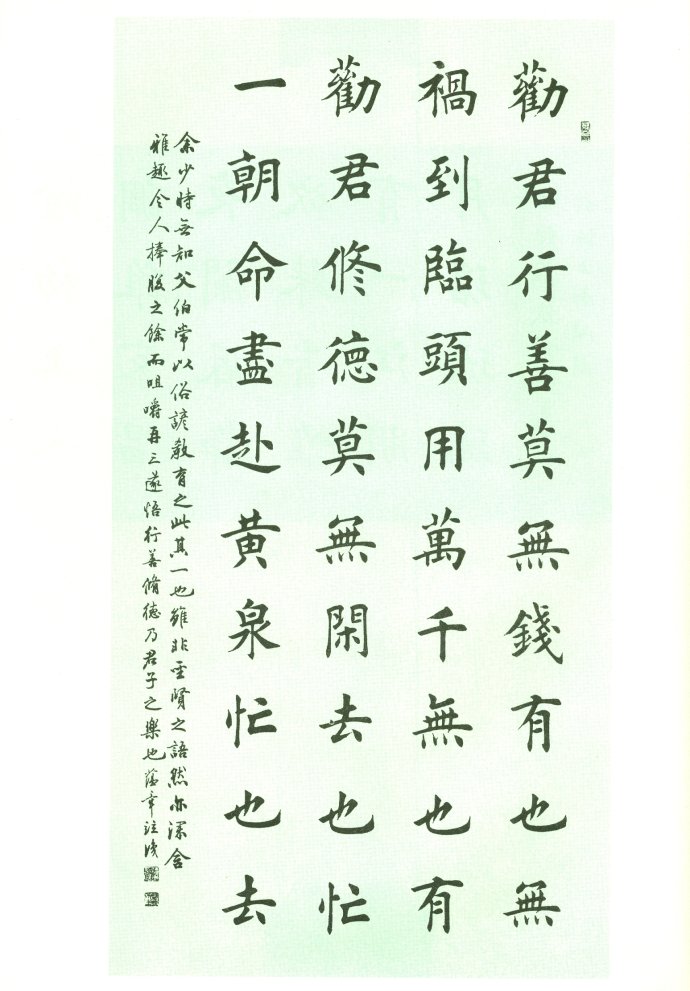 勸君行善莫無錢有也無
禍到臨頭用萬千無也有
勸君修德莫無閑去也忙
一朝命盡赴黄泉忙也去
余少時無知父伯常以俗諺教育之此其一也雖非聖賢之語然亦深含
雅趣令人捧腹之餘而咀嚼再三遂悟行善脩德乃君子之樂也